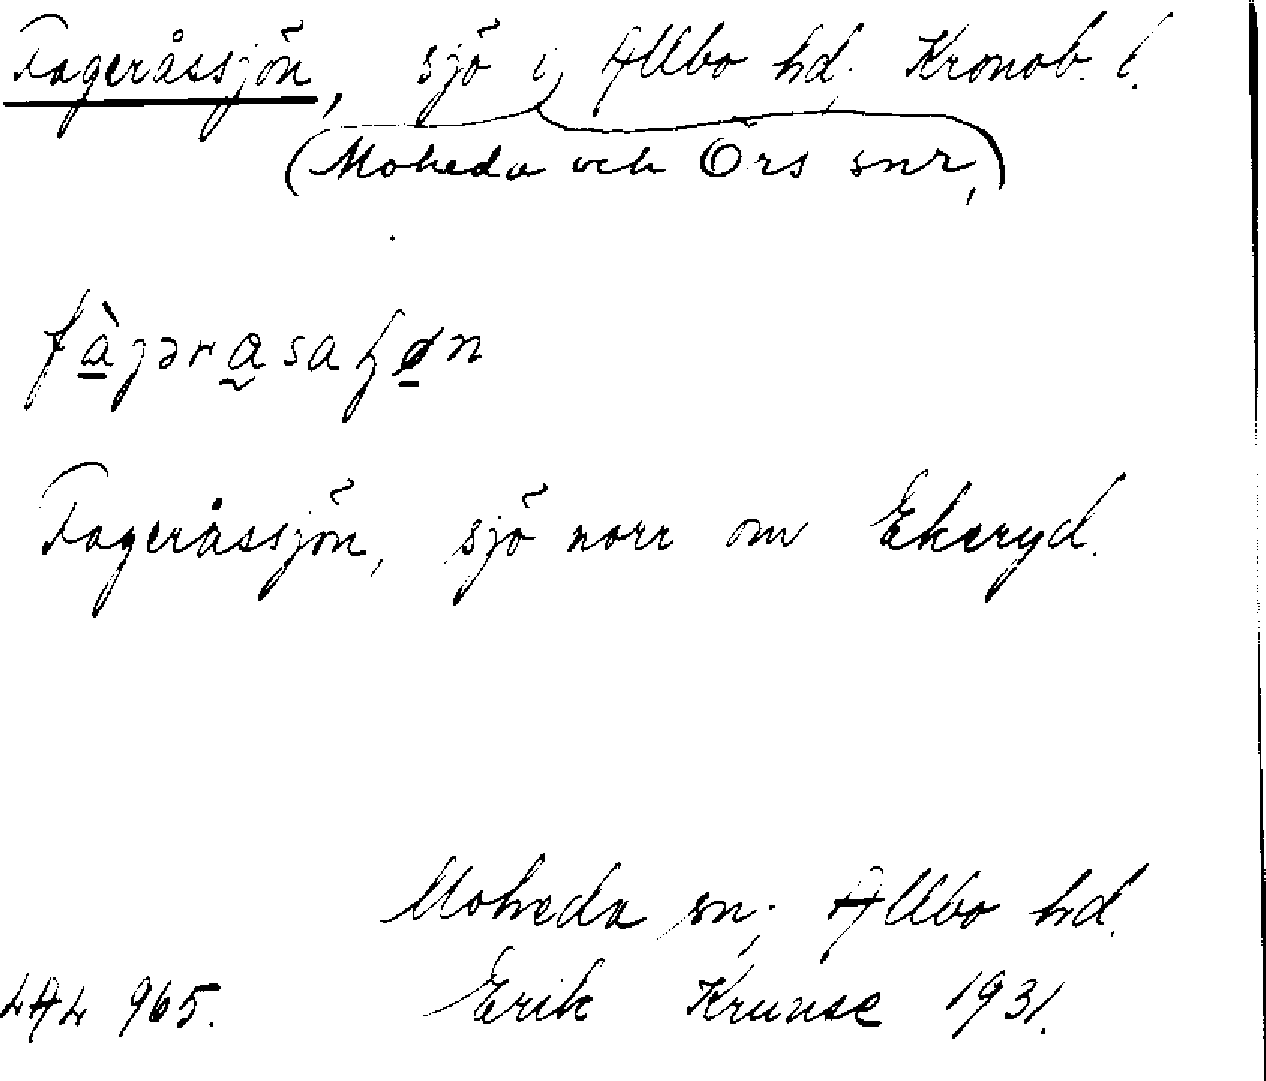 Fageråssjön, sjö i Allbo hd, Kronob. l.
(Moheda och Örs snr,)
Fageråssjön, sjö norr om Ekeryd.
Moheda sn, Allbo hd.
965. Erik Krunse 1931.